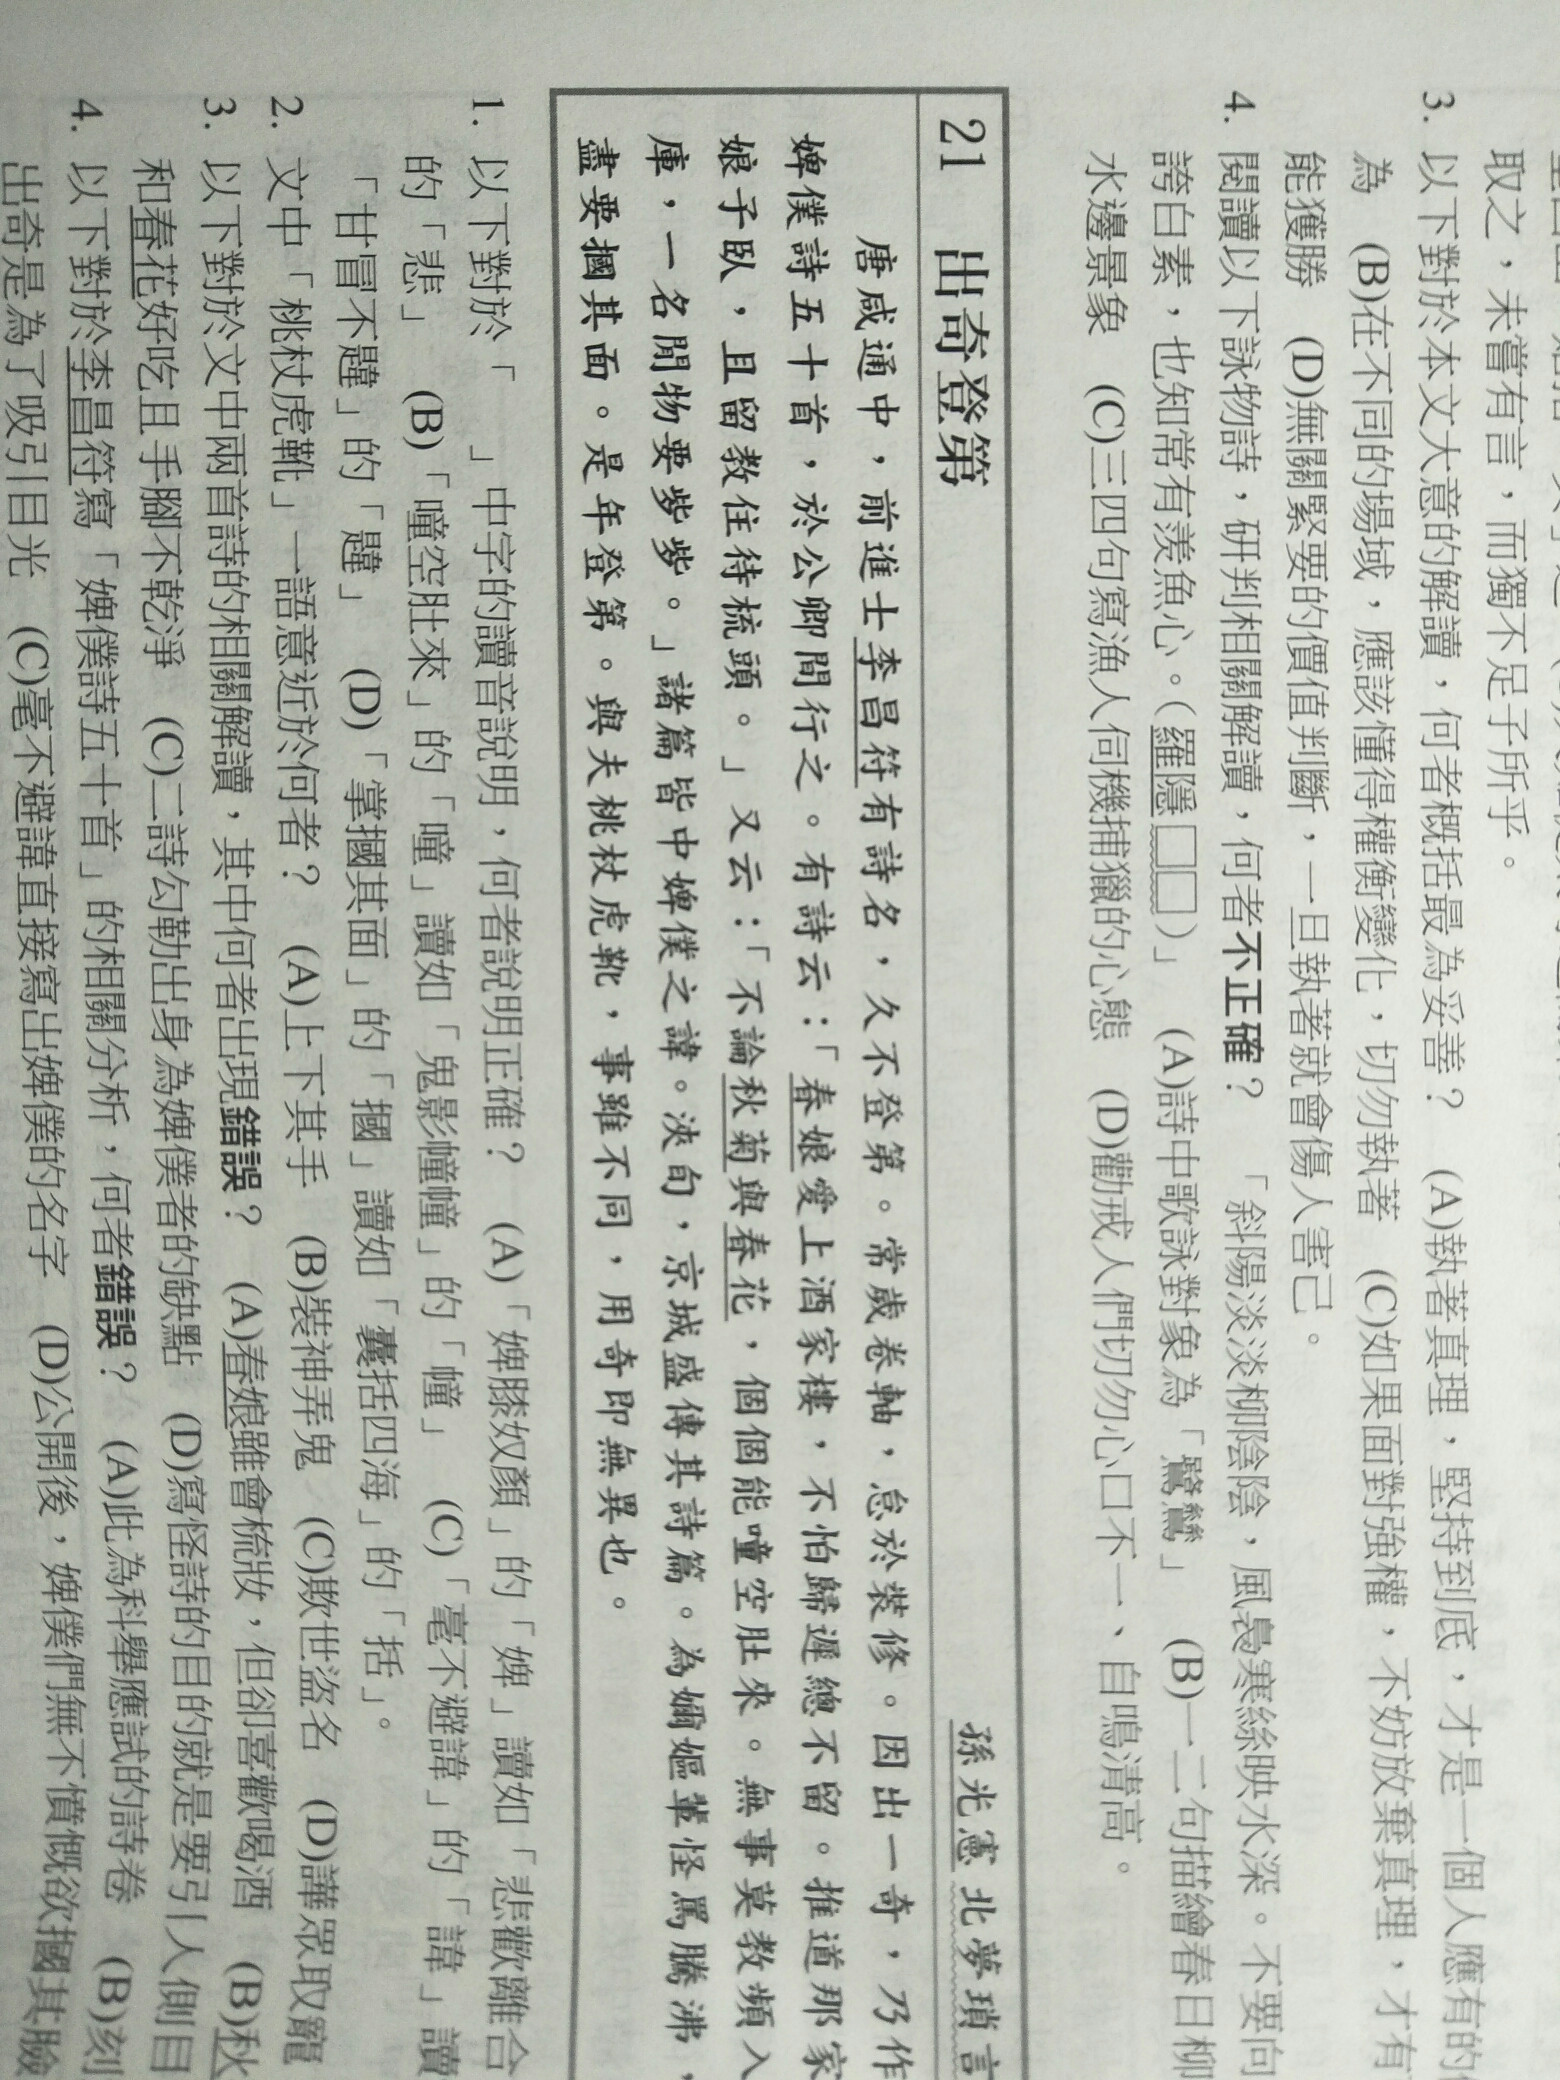 取之，未嘗有言，而獨不足子所乎。
3. 以下對於本文大意的解讀，何者概括最為妥善？　(A)執著真理，堅持到底，才是一個人應有的
為　(B)在不同的場域，應該懂得權衡變化，切勿執著　(C)如果面對強權，不妨放棄真理，才有
能獲勝　(D)無關緊要的價值判斷，一旦執著就會傷人害己。
4. 閱讀以下詠物詩，研判相關解讀，何者不正確？　「斜陽淡淡柳陰陰，風裊寒絲映水深。不要向
誇白素，也知常有羨魚心。（羅隱□□）」　(A)詩中歌詠對象為「鷺鷥」　(B)一二句描繪春日柳
水邊景象　(C)三四句寫漁人伺機捕獵的心態　(D)勸戒人們切勿心口不一、自鳴清高。
21　出奇登第　孫光憲 北夢瑣言
唐咸通中，前進士李昌符有詩名，久不登第。常歲卷軸，怠於裝修。因出一奇，乃作
婢僕詩五十首，於公卿間行之。有詩云：「春娘愛上酒家樓，不怕歸遲總不留。推道那家
娘子臥，且留教住待梳頭。」又云：「不論秋菊與春花，個個能噇空肚來。無事莫教頻入
庫，一名閒物要𡭜𡭜。」諸篇皆中婢僕之諱。浹旬，京城盛傳其詩篇。為嬭嫗輩怪罵騰沸，
盡要摑其面。是年登第。與夫桃杖虎靴，事雖不同，用奇即無異也。
1. 以下對於「　」中字的讀音說明，何者說明正確？　(A)「婢膝奴顏」的「婢」讀如「悲歡離合
的「悲」　(B)「噇空肚來」的「噇」讀如「鬼影幢幢」的「幢」　(C)「毫不避諱」的「諱」讀
「甘冒不韙」的「韙」　(D)「掌摑其面」的「摑」讀如「囊括四海」的「括」。
2. 文中「桃杖虎靴」一語意近於何者？　(A)上下其手　(B)裝神弄鬼　(C)欺世盜名　(D)譁眾取寵
3. 以下對於文中兩首詩的相關解讀，其中何者出現錯誤？　(A)春娘雖會梳妝，但卻喜歡喝酒　(B)秋
和春花好吃且手腳不乾淨　(C)二詩勾勒出身為婢僕者的缺點　(D)寫怪詩的目的就是要引人側目
4. 以下對於李昌符寫「婢僕詩五十首」的相關分析，何者錯誤？　(A)此為科舉應試的詩卷　(B)刻
出奇是為了吸引目光　(C)毫不避諱直接寫出婢僕的名字　(D)公開後，婢僕們無不憤慨欲摑其臉